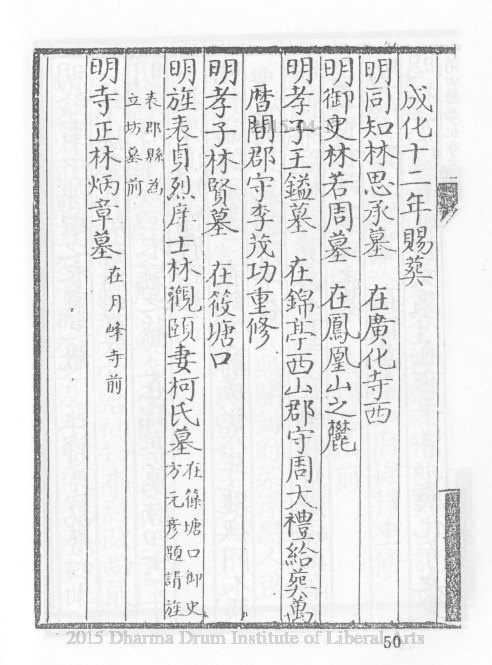 成化十二年賜葬
明同知林思承墓　在廣化寺西
明御史林若周墓　在鳳凰山之麓
明孝子王鎰墓　在錦亭西山郡守周大禮給葬萬
曆間郡守李茂功重修
明孝子林賢墓　在筱塘口
明旌表貞烈庠士林觀頤妻柯氏墓 在篠塘口御史方元彥題請旌
表郡縣為立坊墓前
明寺正林炳章墓 在月峰寺前
2015 Dharma Drum Institute of Liberal Arts
50